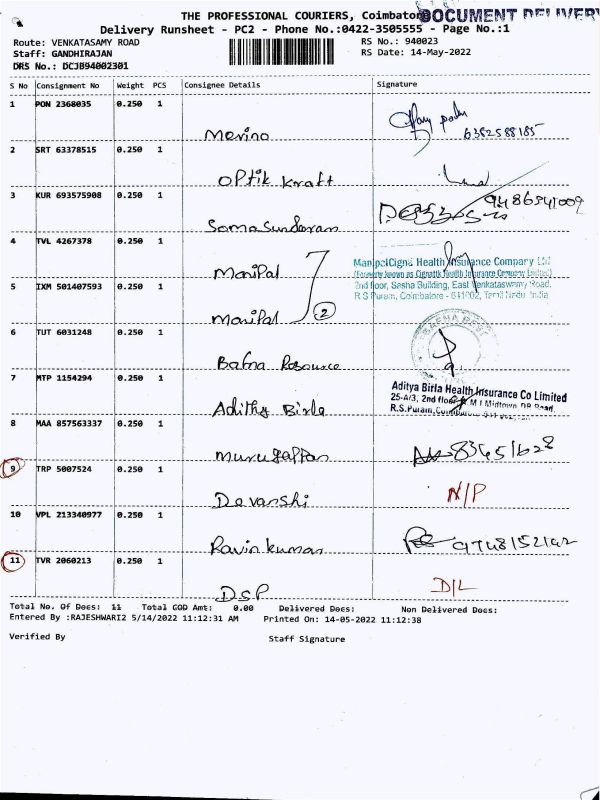 THE PROFESSIONAL COURIERS, Coimbator
DOCUMENT DELIVERY
Delivery Runsheet - PC2 - Phone No.:0422-3505555 - Page No.:1
Route: VENKATASAMY ROAD RS No.: 940023
Staff: GANDHIRAJAN RS Date: 14-May-2022
DRS No.: DCJB94002301
S No Consignment No Weight PCS Consignee Details Signature
1 PON 2368035 0.250 1
Merino 6382588185
2 SRT 63378515 0.250 1
Optik Kraft
3 KUR 693575908 0.250 1
Somasundaram
4 TVL 4267378 0.250 1
Manipal
ManipalCigna Health Insurance Company Ltd
(Formerly known as Cignattk Health Insurance Company Limited)
2nd floor, Sasha Building, East Venkataswamy Road,
R.S Puram, Coimbatore - 641002, Tamil Nadu India
5 IXM 501407593 0.250 1
Manipal 2
6 TUT 6031248 0.250 1
Bafna Resource
7 MTP 1154294 0.250 1
Adithy Birla
Aditya Birla Health Insurance Co Limited
25-A/3, 2nd floor M I Midtown DB Road,
R.S.Puram,
8 MAA 857563337 0.250 1
Murugappan
9 TRP 5007524 0.250 1
Devanshi N/P
10 VPL 213340977 0.250 1
Ravinkumar 9748152142
11 TVR 2060213 0.250 1
DSP D/L
Total No. Of Docs: 11 Total COD Amt: 0.00 Delivered Docs: Non Delivered Docs:
Entered By :RAJESHWARI2 5/14/2022 11:12:31 AM Printed On: 14-05-2022 11:12:38
Verified By Staff Signature